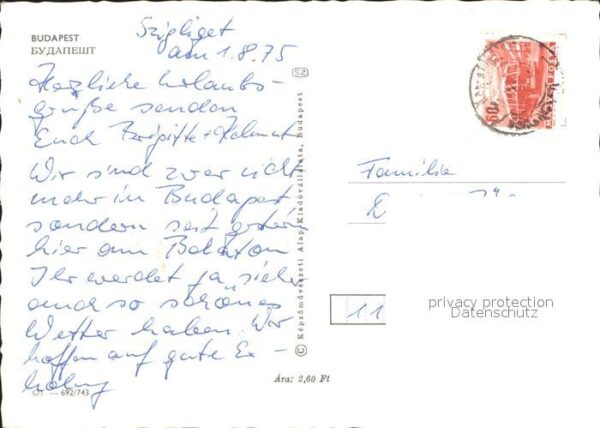 BUDAPEST
БУДАПЕШТ
Szigliget
am 1.8.75
Herzliche Urlaubs-
grüße senden
Euch Brigitte + Helmut
Wir sind zwar nicht
mehr in Budapest
sondern seit gestern
hier am Balaton
Ihr werdet ja sicher
auch so schönes
Wetter haben. Wir
hoffen auf gute Er-
holung
SZ
© Képzőművészeti Alap Kiadóvállalata, Budapest
Familie
11
privacy protection
Datenschutz
Ára: 2,60 Ft
692/743